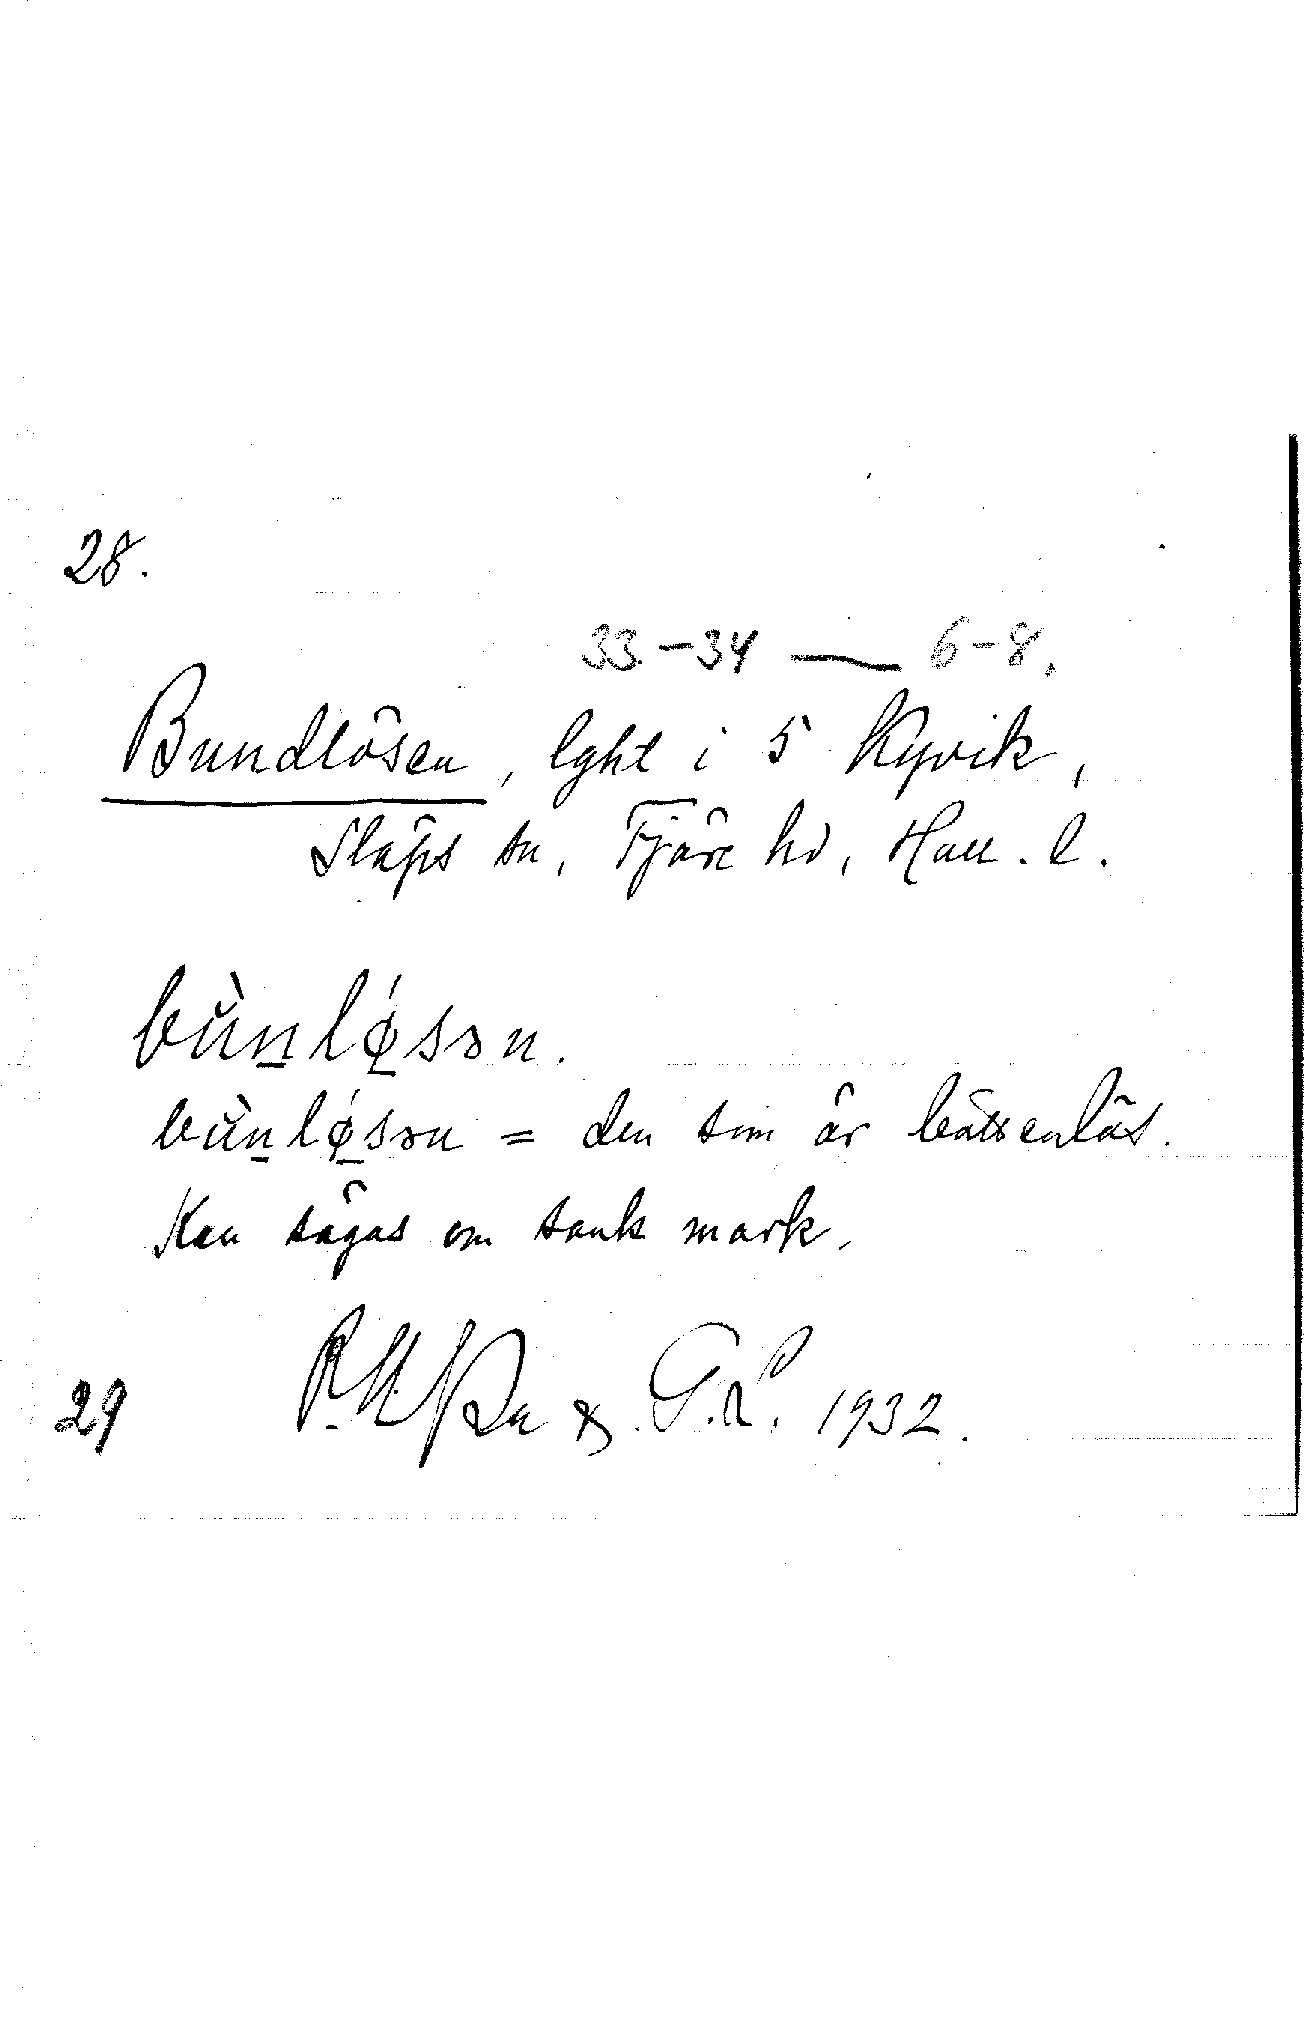 28.
33-34 — 6-8.
Bundlösen, lght i 5 Kyvik,
Släps sn, Fjäre hd, Hall. l.
bùn̲lǿ̲sən.
bùn̲lǿ̲sən = den som är bottenlös.
Kan sägas om sank mark.
29 & G.L. 1932.